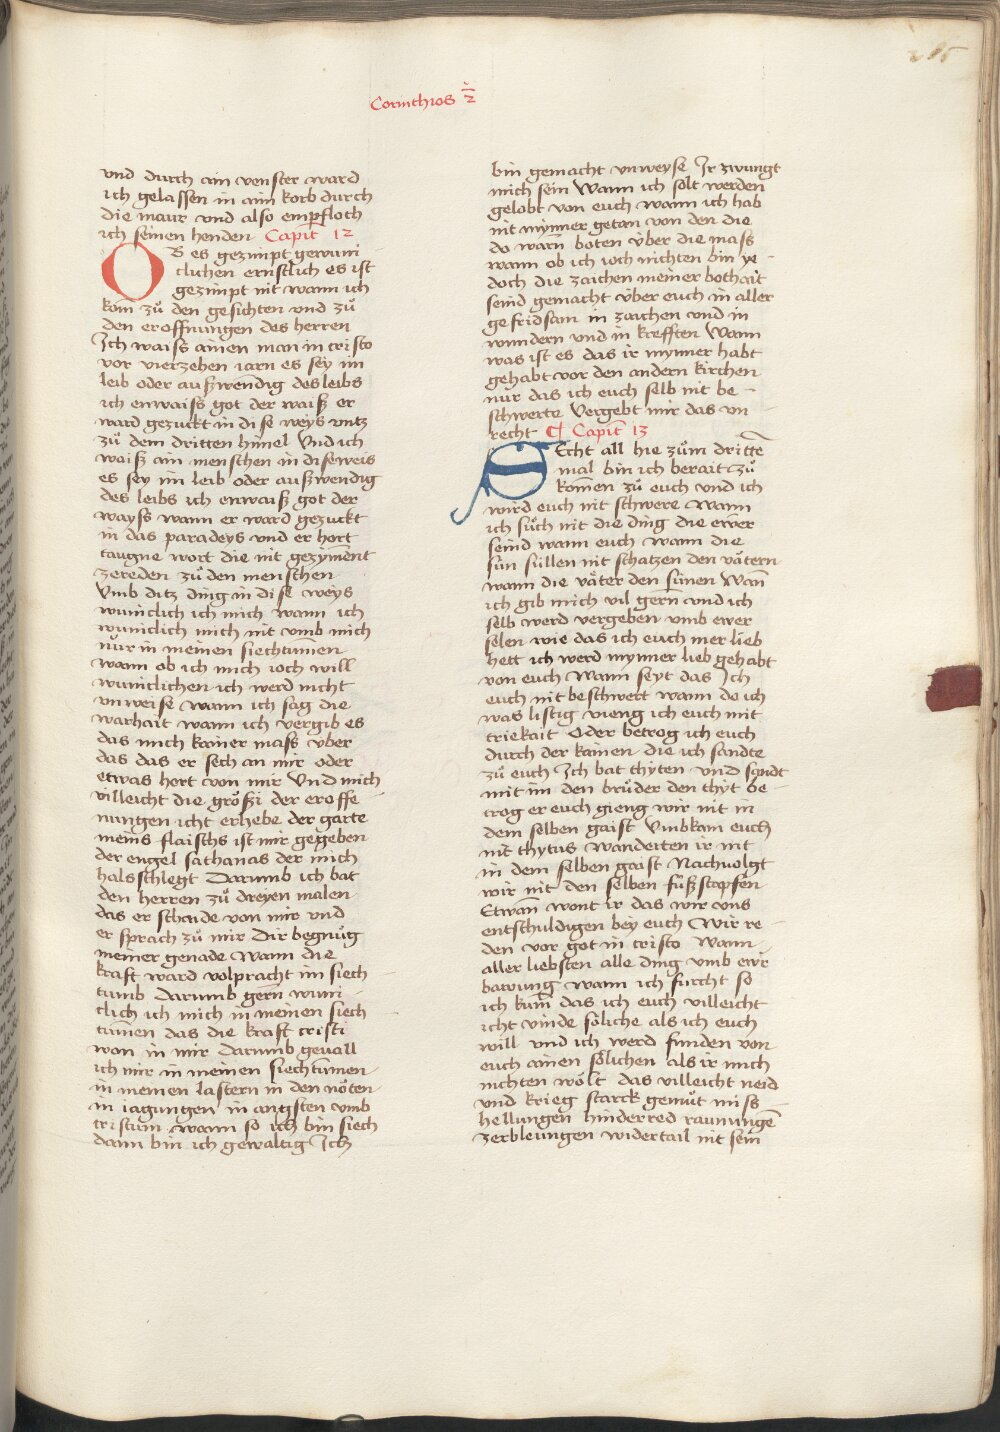 Corinthios 2
und durch ain venster ward
ich gelassen in aim korb durch
die maur und also empfloch
ich seinen henden Capit̃ 12
OB es gezimpt gewuni
clichen ernstlich es ist
gezimpt nit wann ich
kom̄ zů den gesichten und zů
den eroffnungen des herren
Ich waiss ainen man in cristo
vor vierzehen iarn es sey im
leib oder außwendig des leibs
ich enwaiss got der waiß er
ward gezuckt in dise weys untz
zů dem dritten himel Und ich
waiß ain menschen in diseweis
es sey im leib oder außwendig
des leibs ich enwaiß got der
wayss wann er ward gezuckt
in das paradeys und er hort
taugne wort die nit gezyment
zereden zů den menschen
Umb ditz ding in dise weys
wuniclich ich mich wann ich
wuniclich mich nit umb mich
nůr in meinen siechtumen
wann ob ich mich ioch will
wuniclichen ich werd nicht
unweise wann ich sag die
warhait wann ich vergib es
das mich kainer mass über
das das er sech an mir oder
etwas hort von mir Und mich
villeicht die größi der eroffe
nungen icht erhebe der garte
meins flaischs ist mir gegeben
der engel sathanas der mich
halsschlegt Darumb ich bat
den herren zů dreyen malen
das er schaide von mir und
er sprach zů mir Dir begnůg
meiner genade Wann die
kraft ward volpracht im siech
tumb Darumb gern wuni-
clich ich mich in meinen siech
tumen das die kraft cristi
won in mir Darumb gevall
ich mir in meinen siechtumen
in meinen lastern in den nöten
in iagungen in angsten umb
cristum wann so ich bin siech
dann bin ich gewaltig Ich
bin gemacht unweyse Ir zwungt
mich sein Wann ich solt werden
gelobt von euch wann ich hab
nit mynner getan von den die
do warn boten über die mass
wann ob ich ioch nichten bin ye-
doch die zaichen meiner bothait
seind gemacht über euch in aller
gefridsam in zaichen und in
wundern und in krefften Wann
was ist es das ir mynner habt
gehabt vor den andern kirchen
nur das ich euch selb nit be-
schwerte Vergebt mir das un
recht ¶ Capit̃ 13
SEcht all hie zům drittē
mal bin ich berait zů
komen zů euch und ich
wird euch nit schwere wann
ich sůch nit die ding die ewer
seind wann euch wann die
sün süllen nit schatzen den vätern
wann die väter den sünen Wan̄
ich gib mich vil gern und ich
selb werd vergeben umb ewer
selen wie das ich euch mer lieb
hett ich werd mynner lieb gehabt
von euch Wann seyt das Ich
euch nit beschwert wann do ich
was listig vieng ich euch mit
triekait Oder betrog ich euch
durch der kainen die ich sandte
zů euch Ich bat thyten und sandt
mit im den brüder den thyt be-
trog er euch gieng wir nit in
dem selben gaist Umbkam euch
nit thytus wanderten ir nit
in dem selben gaist Nachvolgt
wir nit den selben fůßstapfen
Etwan̄ wont ir das wir uns
entschuldigen bey euch Wir re
den vor got in cristo Wann
aller liebsten alle ding umb ewr
bawung wann ich fürcht so
ich kum̄ das ich euch villeicht
icht vinde söliche als ich euch
will und ich werd funden von
euch ainen sölichen als ir mich
nichten wölt das villeicht neid
und krieg starck gemůt miss
hellungen hinderred raunungē
zerbleungen widertail nit sein